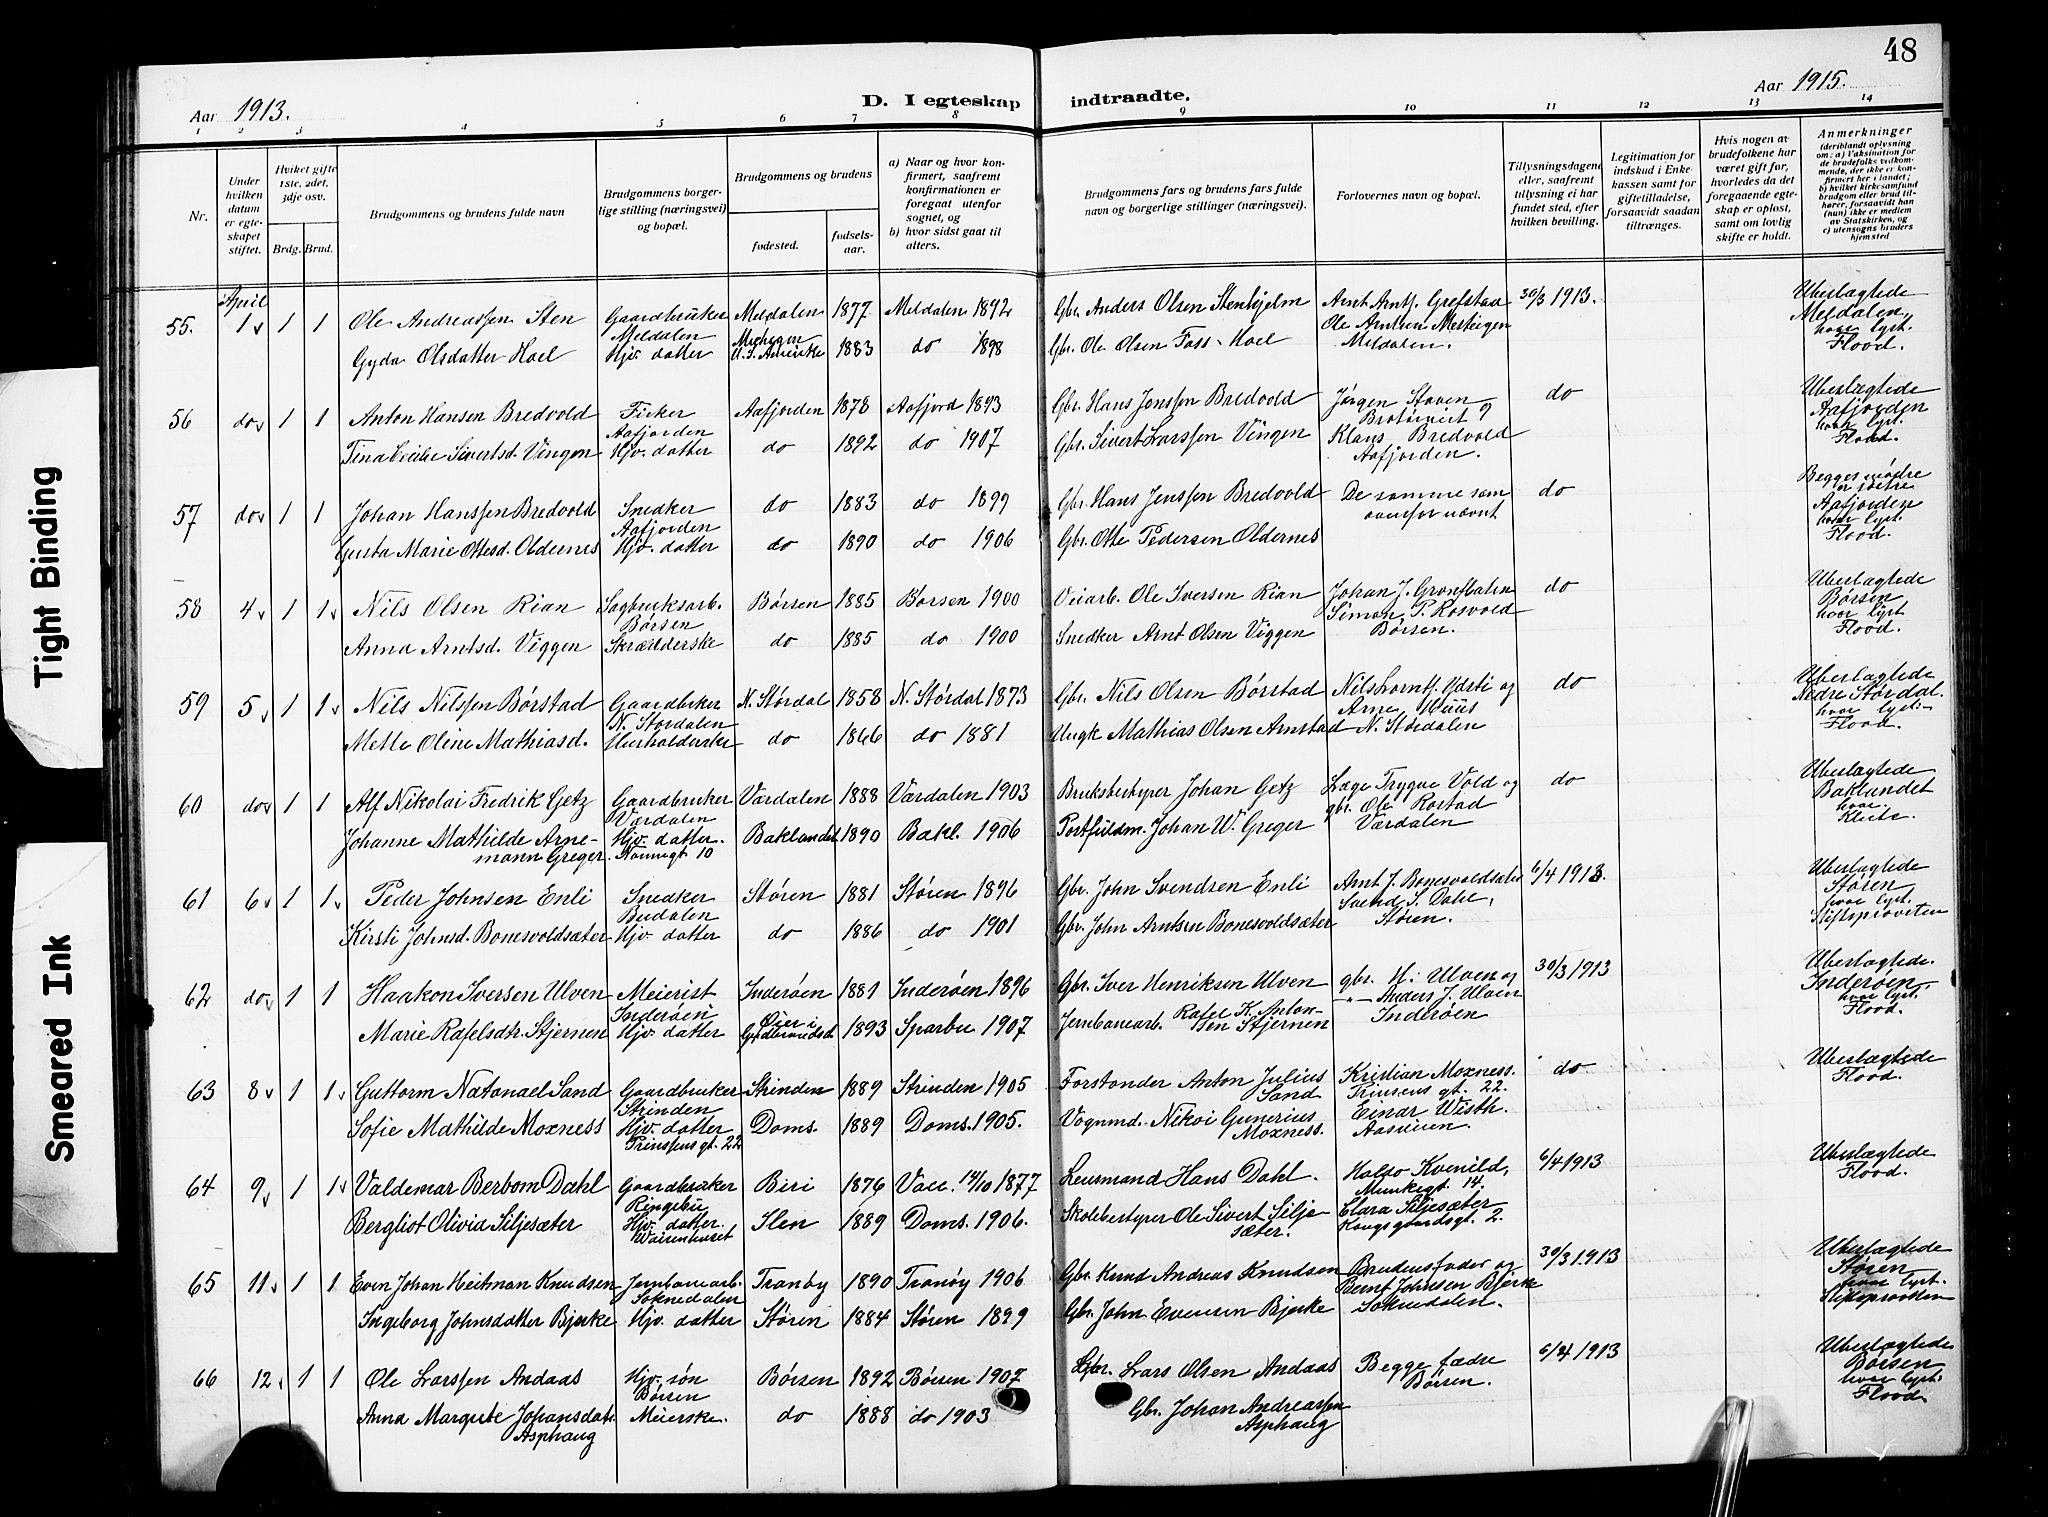 48
Aar 1913.
D. I egteskap indtraadte.
Aar 1915.
1 2 3 4 5 6 7 8 9 10 11 12 13 14
Nr.
Under hvilken datum er egteskapet stiftet.
Hvilket gifte 1ste, 2det, 3dje osv.
Brdg. Brud.
Brudgommens og brudens fulde navn
Brudgommens borgerlige stilling (næringsvei) og bopæl.
Brudgommens og brudens
fødested. fødselsaar.
a) Naar og hvor konfirmert, saafremt konfirmationen er foregaat utenfor sognet, og
b) hvor sidst gaat til alters.
Brudgommens fars og brudens fars fulde navn og borgerlige stillinger (næringsvei).
Forlovernes navn og bopæl.
Tillysningsdagene eller, saafremt tillysning ei har fundet sted, efter hvilken bevilling.
Legitimation for indskud i Enkekassen samt for giftetilladelse, forsaavidt saadan tiltrænges.
Hvis nogen av brudefolkene har været gift før, hvorledes da det foregaaende egteskap er opløst, samt om lovlig skifte er holdt.
Anmerkninger (deriblandt oplysning om: a) Vaksination for de brudefolks vedkommende, der ikke er konfirmert her i landet; b) hvilket kirkesamfund brudgom eller brud tilhører, forsaavidt han (hun) ikke er medlem av Statskirken, og c) utensogns bruders hjemsted
April
55. 1 1 1 Ole Andreassen Sten Gaardbruker Meldalen Meldalen 1877 Meldalen 1892 Gbr. Anders Olsen Stenhjelm Arnt Arnts. Grefstad 30/3 1913. Ubeslægtede Meldalen, hvor lyst. Flood.
Gyda Olsdatter Hoel Hjv. datter Michigan U. S. Amerike 1883 do 1898 Gbr. Ole Olsen Foss-Hoel Ole Arntsen Meldalen.
56 do 1 1 Anton Hansen Bredvold Fisker Aafjorden Aafjorden 1878 Aafjord 1893 Gbr. Hans Jenssen Bredvold Jørgen do Ubeslægtede Aafjorden hvor lyst. Flood.
Tina Cecilie Sivertsd. Vingen Hjv. datter do 1892 do 1907 Gbr. Sivert Larssen Vingen Klaus Bredvold Aafjorden.
57 do 1 1 Johan Hanssen Bredvold Snedker Aafjorden do 1883 do 1899 Gbr. Hans Jenssen Bredvold De samme som ovenfor nævnt do Begges mødre er søstre Aafjorden hvor lyst. Flood.
Gusta Marie Ottesd. Oldernes Hjv. datter do 1890 do 1906 Gbr. Otte Pedersen Oldernes
58 4 1 1 Nils Olsen Rian Sagbruksarb. Børsen Børsen 1885 Børsen 1900 Veiarb. Ole Iversen Rian Johan J. do Ubeslægtede Børsen hvor lyst Flood.
Anna Arntsd. Viggen Skrædderske do 1885 do 1900 Snedker Arnt Olsen Viggen Simon P. Rosvold Børsen.
59 5 1 1 Nils Nilssen Børstad Gaardbruker N. Størdalen N. Størdal 1858 N. Størdal 1873 Gbr. Nils Olsen Børstad Nils Lornts. Ydsti og do Ubeslægtede Nedre Størdal. hvor lyst. Flood.
Mette Oline Mathiasd. Husholderske do 1866 do 1881 Ungk Mathias Olsen Arnstad Arne Huus N. Størdalen
60 do 1 1 Alf Nikolai Fredrik Getz Gaardbruker Værdalen Værdalen 1888 Værdalen 1903 Bruksbestyrer Johan Getz Læge Trygve Vold og do Ubeslægtede Baklandet hvor.
Johanne Mathilde Arnemann Greger. Hjv. datter. Nonnegt 10 Baklandet 1890 Bakl. 1906 Postfuldm. Johan W. Greger gbr. Ole Rostad Værdalen
61 6 1 1 Peder Johnsen Enli Snedker Budalen Støren 1881 Støren 1896 Gbr. John Svendsen Enli Arnt J. Bonesvoldsæter 6/4 1913. Ubeslægtede Støren, hvor lyst. Stiftsprovsten
Kirsti Johnsd. Bonesvoldsæter Hjv. datter do 1886 do 1901 Gbr. John Arntsen Bonesvoldsæter Svend S. Dahl, Støren.
62 do 1 1 Haakon Iversen Ulven Meierist Inderøen Inderøen 1881 Inderøen 1896 Gbr. Iver Henriksen Ulven gbr. H. Ulven og 30/3 1913 Ubeslægtede. Inderøen hvor lyst. Flood.
Marie Rafelsdtr. Stjernen Hjv. datter Øier i Gudbrandsd. 1893 Sparbu 1907 Jernbanearb. Rafel K. Antonsen Stjernen Anders J. Ulven Inderøen
63 8 1 1 Guttorm Natanael Sand Gaardbruker Strinden Strinden 1889 Strinden 1905 Forstander Anton Julius Sand Kristian Moxness. Prinsens gt. 22. do Ubeslægtede Flood.
Sofie Mathilde Moxness Hjv. datter Prinsens gt. 22 Doms. 1889 Doms. 1905. Vognmd. Nikoi Gunerius Moxness. Einar Wisth. Aasveien.
64 9 1 1 Valdemar Berbom Dahl Gaardbruker Ringebu Biri 1876 Vacc. 14/10 1877 Lensmand Hans Dahl. Halvo Kvenild, Munkegt. 14. 6/4 1913 Ubeslægtede Flood.
Bergliot Olivia Siljesæter Hjv. datter. Waisenhuset Slen 1889 Doms. 1906. Skolebestyrer Ole Sivert Siljesæter. Clara Siljesæter Kongsgaardsgt. 2.
65 11 1 1 Even Johan Heitman Knudsen Jernbanearb. Soknedalen Tranøy 1890 Tranøy 1906 Gbr. Knud Andreas Knudsen Brudens fader og 30/3 1913 Ubeslægtede Støren hvor lyst. Stiftsprovsten
Ingeborg Johnsdatter Bjerke Hjv. datter Støren 1884 Støren 1899 Gbr. John Evensen Bjerke Bernt Johnsen Bjerke Soknedalen.
66 12 1 1 Ole Larssen Andaas Hjv. søn Børsen Børsen 1892 Børsen 1907 Gbr. Lars Olsen Andaas Begge fædre Børsen. 6/4 1913 Ubeslægtede Børsen hvor lyst. Flood
Anna Margrete Johansdatr. Asphaug Meierske. do 1888 do 1903 Gbr. Johan Andreassen Asphaug
Tight Binding
Smeared Ink